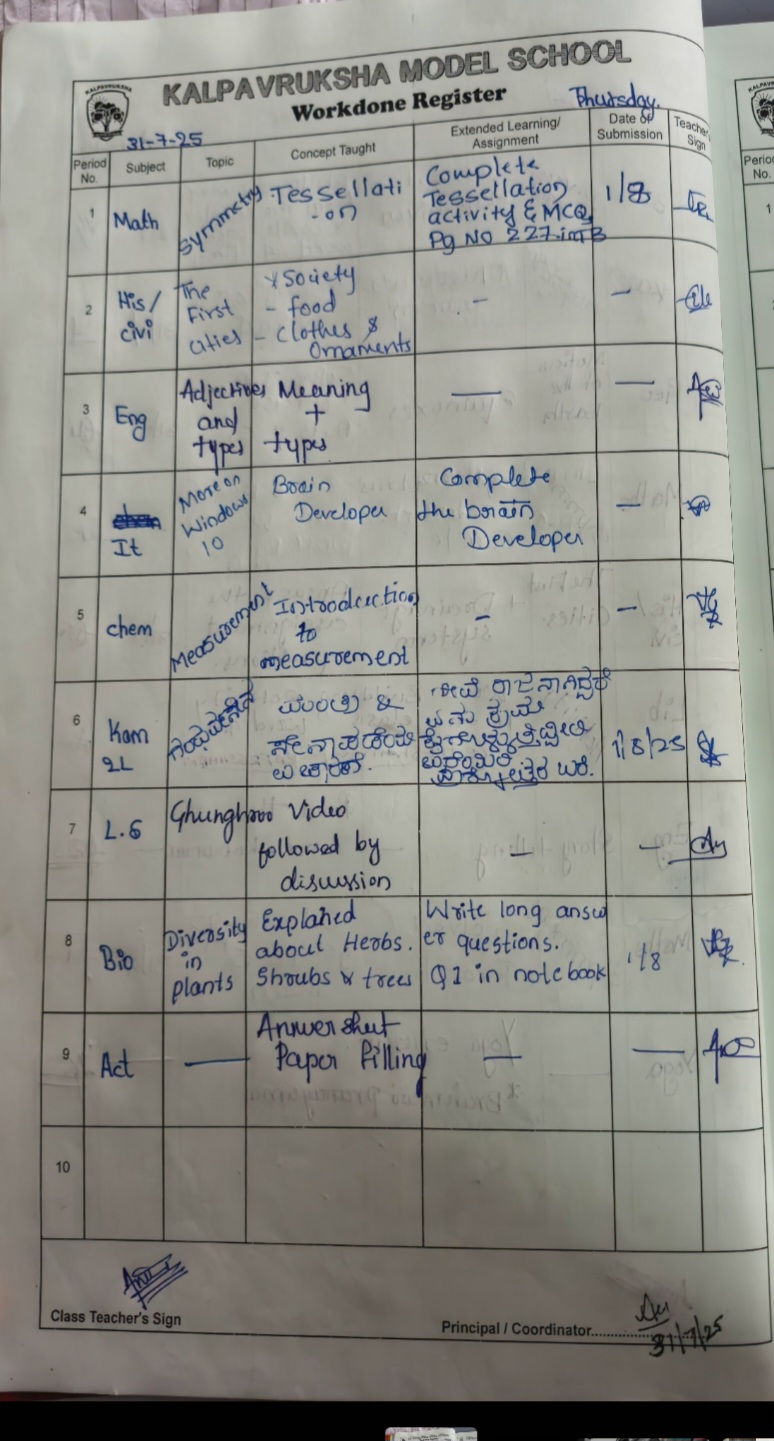 KALPAVRUKSHA
KALPAVRUKSHA MODEL SCHOOL
Workdone Register
Thursday.
31-7-25
Period No. Subject Topic Concept Taught Extended Learning/ Assignment Date of Submission Teacher Sign
1 Math Symmetry Tessellati
-on
Complete
Tessellation
activity & MCQ
Pg No 227 in TB
1/8
2 His/
civi
The
First
cities
Society
- food
- Clothes &
Ornaments
-
-
3 Eng
Adjectives
and
types
Meaning
+
types
—
—
4
It
More on
Windows
10
Brain
Developer
Complete
the brain
Developer
-
5 chem
Measurement
Introduction
to
measurement
-
-
6 Kan
2L
ಮಂತ್ರಿ &
1/8/25
7 L.S
Ghunghroo Video
followed by
discussion
-
-
8 Bio
Diversity
in
plants
Explained
about Herbs.
Shrubs & trees
Write long answ
er questions.
Q1 in notebook
1/8
9 Act
—
Answer sheet
Paper filling
—
—
10
Class Teacher's Sign
Principal / Coordinator
31/7/25
Period No.
1